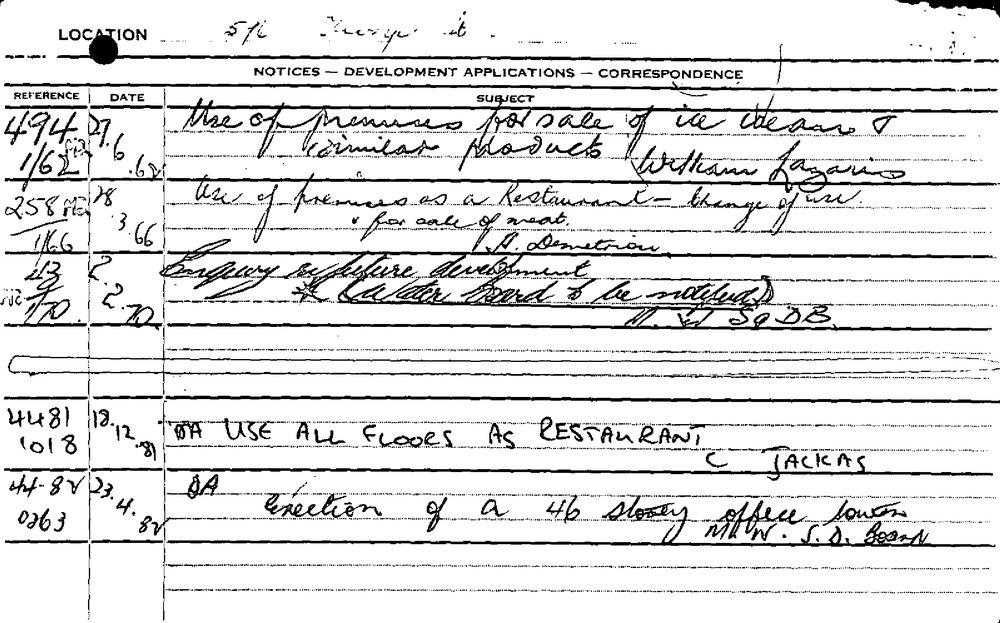 LOCATION
NOTICES — DEVELOPMENT APPLICATIONS — CORRESPONDENCE
REFERENCE DATE SUBJECT
494 27. Use of premises for sale of ice cream &
1/62 6 .62 similar products William Lazaris
258 28 Use of premises as a Restaurant - Change of use
3 for sale of meat.
1/66 66 A. Demetriou
43 2. Enquiry re future development
2. * (Water Board to be notified)
1/70. 70 D.B.
4481 18.
1018 12 .81 DA USE ALL FLOORS AS RESTAURANT
C JACKAS
44-82 23. DA
0263 4. 82 Erection of a 46 storey office tower
M.W.S.D. Board